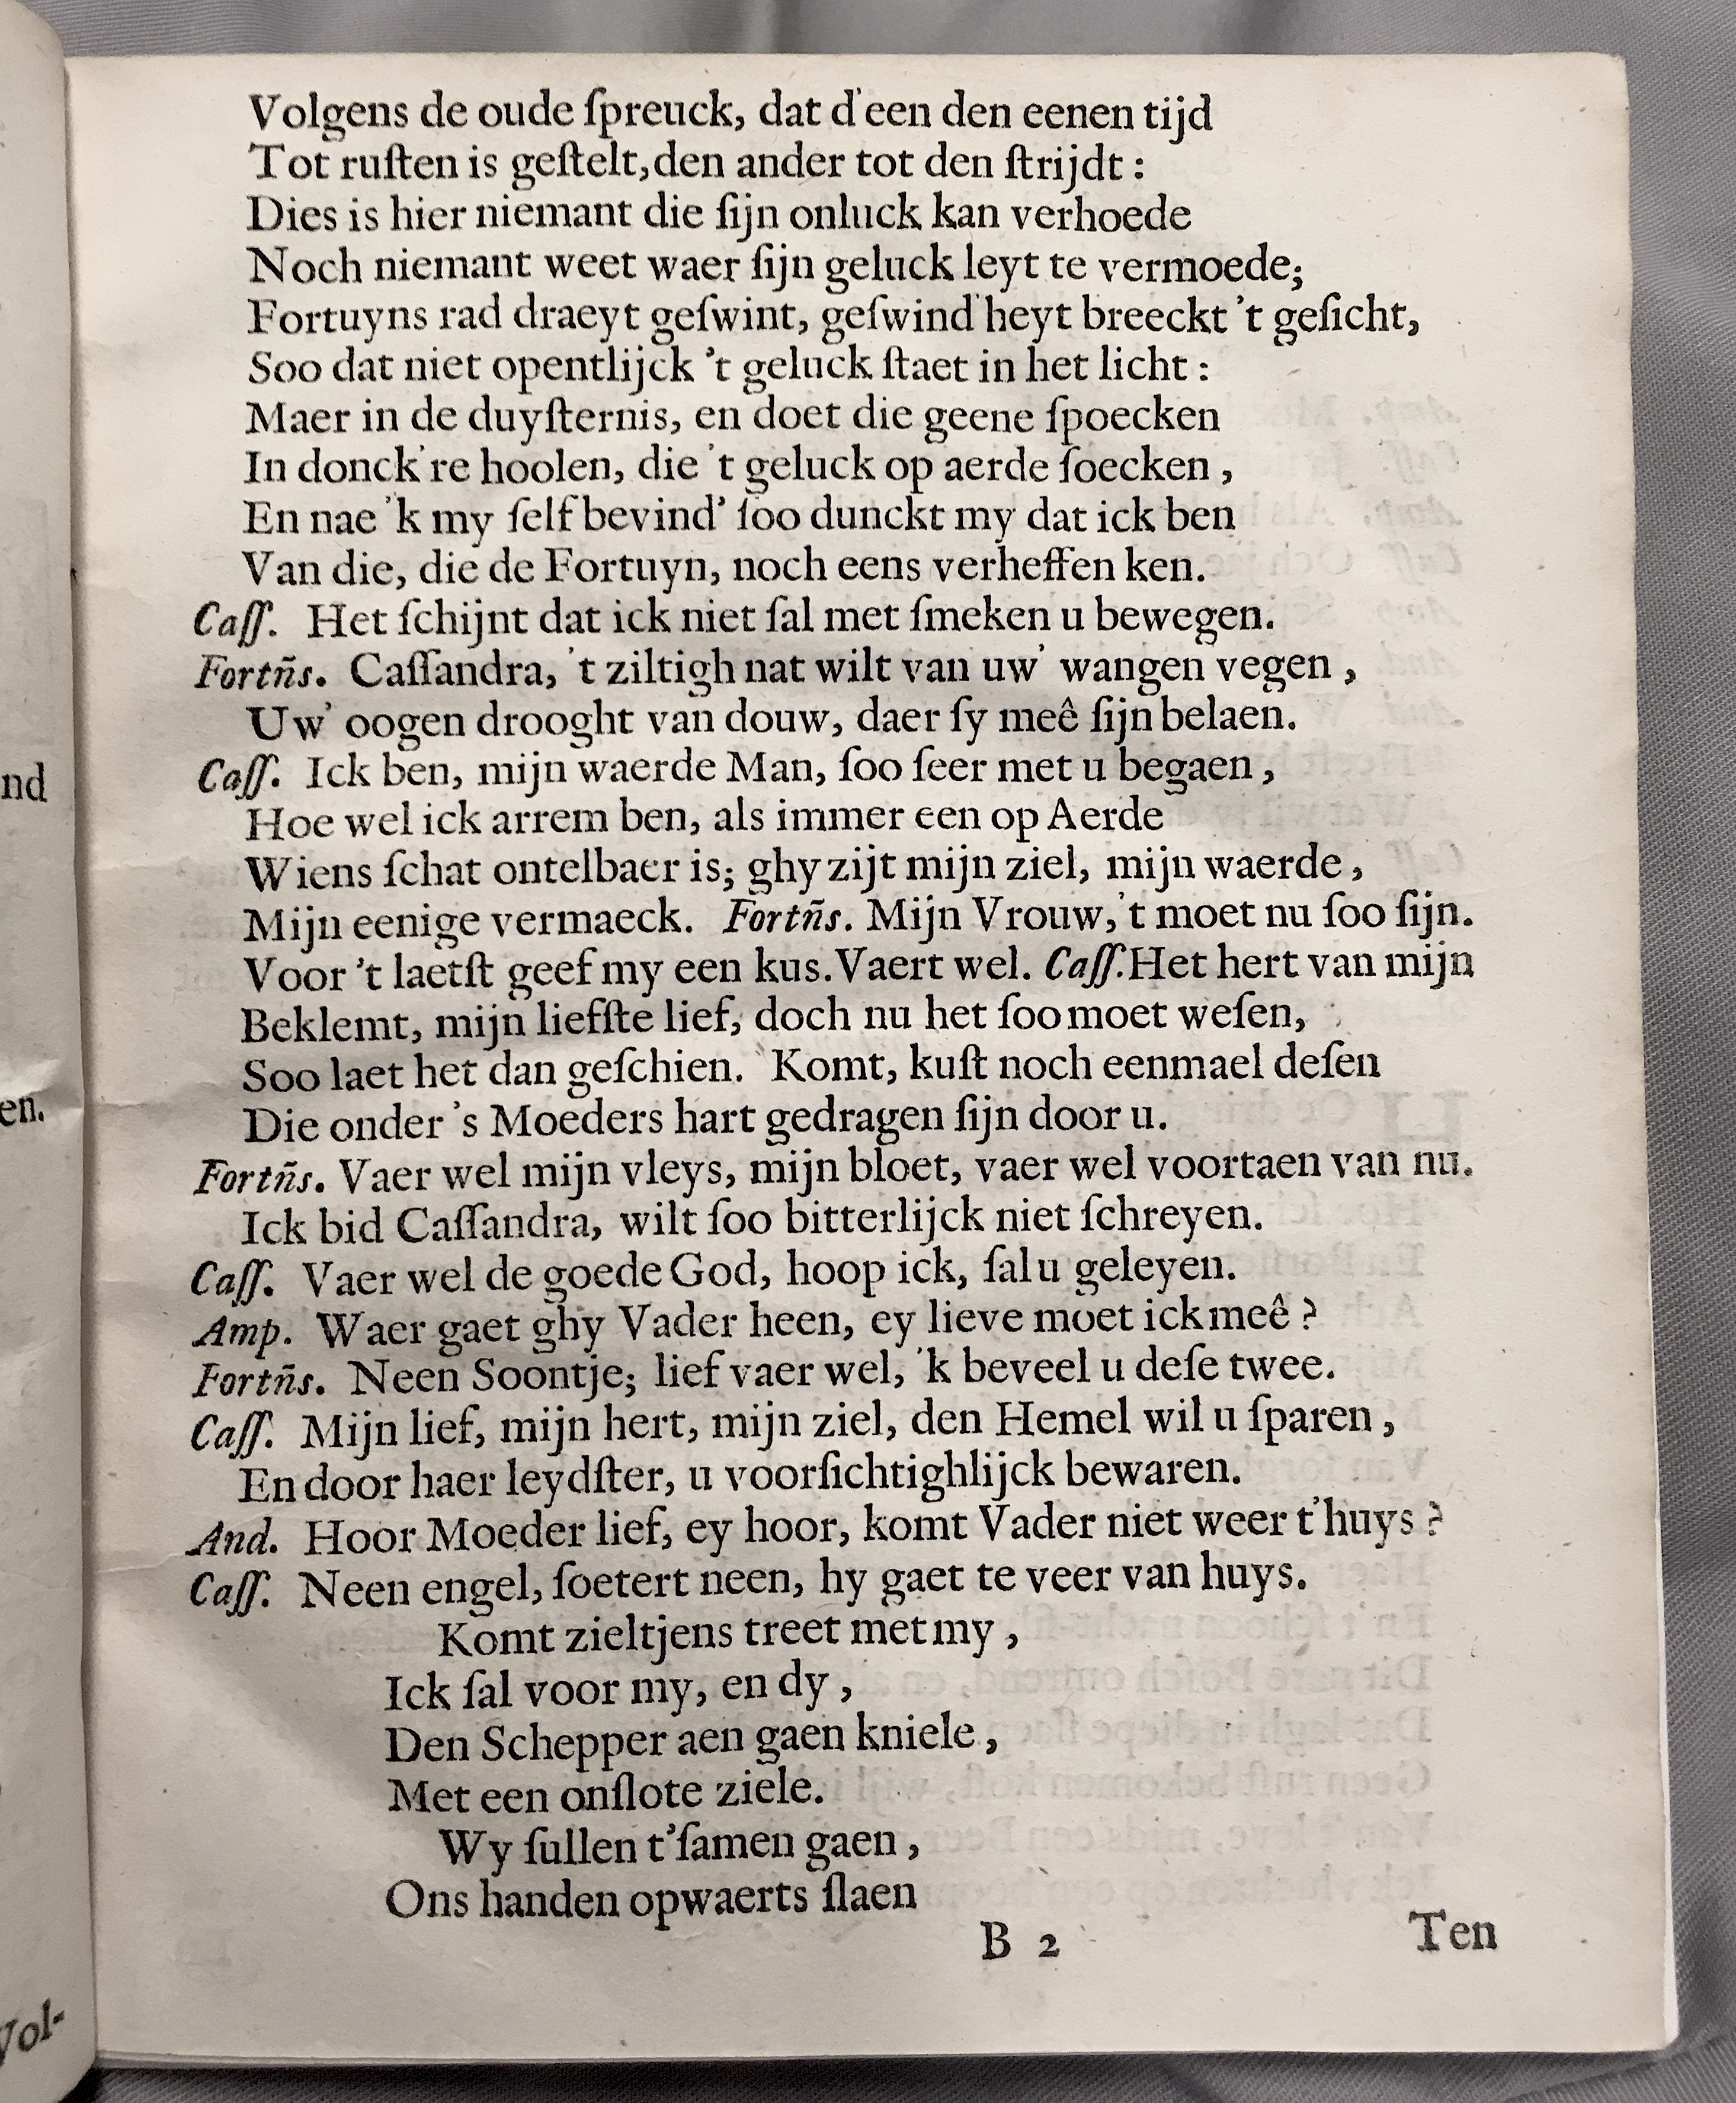 Volgens de oude ſpreuck, dat d'een den eenen tijd
Tot ruſten is geſtelt, den ander tot den ſtrijdt :
Dies is hier niemant die ſijn onluck kan verhoede
Noch niemant weet waer ſijn geluck leyt te vermoede;
Fortuyns rad draeyt geſwint, geſwind'heyt breeckt 't geſicht,
Soo dat niet opentlijck 't geluck ſtaet in het licht :
Maer in de duyſternis, en doet die geene ſpoecken
In donck're hoolen, die 't geluck op aerde ſoecken ,
En nae 'k my ſelf bevind' ſoo dunckt my dat ick ben
Van die, die de Fortuyn, noch eens verheffen ken.
Caſſ. Het ſchijnt dat ick niet ſal met ſmeken u bewegen.
Fortñs. Caſſandra, 't ziltigh nat wilt van uw' wangen vegen ,
Uw' oogen drooght van douw, daer ſy meê ſijn belaen.
Caſſ. Ick ben, mijn waerde Man, ſoo ſeer met u begaen ,
Hoe wel ick arrem ben, als immer een op Aerde
Wiens ſchat ontelbaer is; ghy zijt mijn ziel, mijn waerde ,
Mijn eenige vermaeck. Fortñs. Mijn Vrouw, 't moet nu ſoo ſijn.
Voor 't laetſt geef my een kus. Vaert wel. Caſſ. Het hert van mijn
Beklemt, mijn liefſte lief, doch nu het ſoo moet weſen,
Soo laet het dan geſchien. Komt, kuſt noch eenmael deſen
Die onder 's Moeders hart gedragen ſijn door u.
Fortñs. Vaer wel mijn vleys, mijn bloet, vaer wel voortaen van nu.
Ick bid Caſſandra, wilt ſoo bitterlijck niet ſchreyen.
Caſſ. Vaer wel de goede God, hoop ick, ſal u geleyen.
Amp. Waer gaet ghy Vader heen, ey lieve moet ick meê ?
Fortñs. Neen Soontje; lief vaer wel, 'k beveel u deſe twee.
Caſſ. Mijn lief, mijn hert, mijn ziel, den Hemel wil u ſparen ,
En door haer leydſter, u voorſichtighlijck bewaren.
And. Hoor Moeder lief, ey hoor, komt Vader niet weer t'huys ?
Caſſ. Neen engel, ſoetert neen, hy gaet te veer van huys.
Komt zieltjens treet met my ,
Ick ſal voor my, en dy ,
Den Schepper aen gaen kniele ,
Met een onſlote ziele.
Wy ſullen t'ſamen gaen ,
Ons handen opwaerts ſlaen
B 2 Ten
nd
en.
Vol-